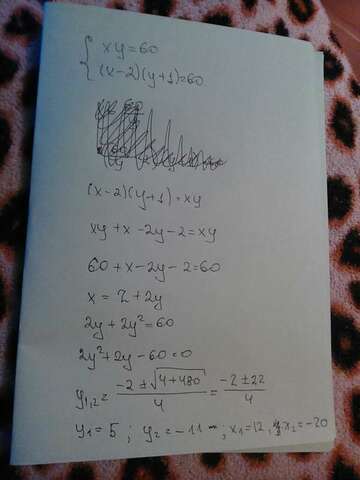 { xy=60
(x-2)(y+1)=60
(x-2)(y+1)=xy
xy+x-2y-2=xy
60+x-2y-2=60
x=2+2y
2y+2y²=60
2y²+2y-60=0
y₁,₂= (-2±√(4+480))/4 = (-2±22)/4
y₁=5 ; y₂=-11 ; x₁=12, x₂=-20